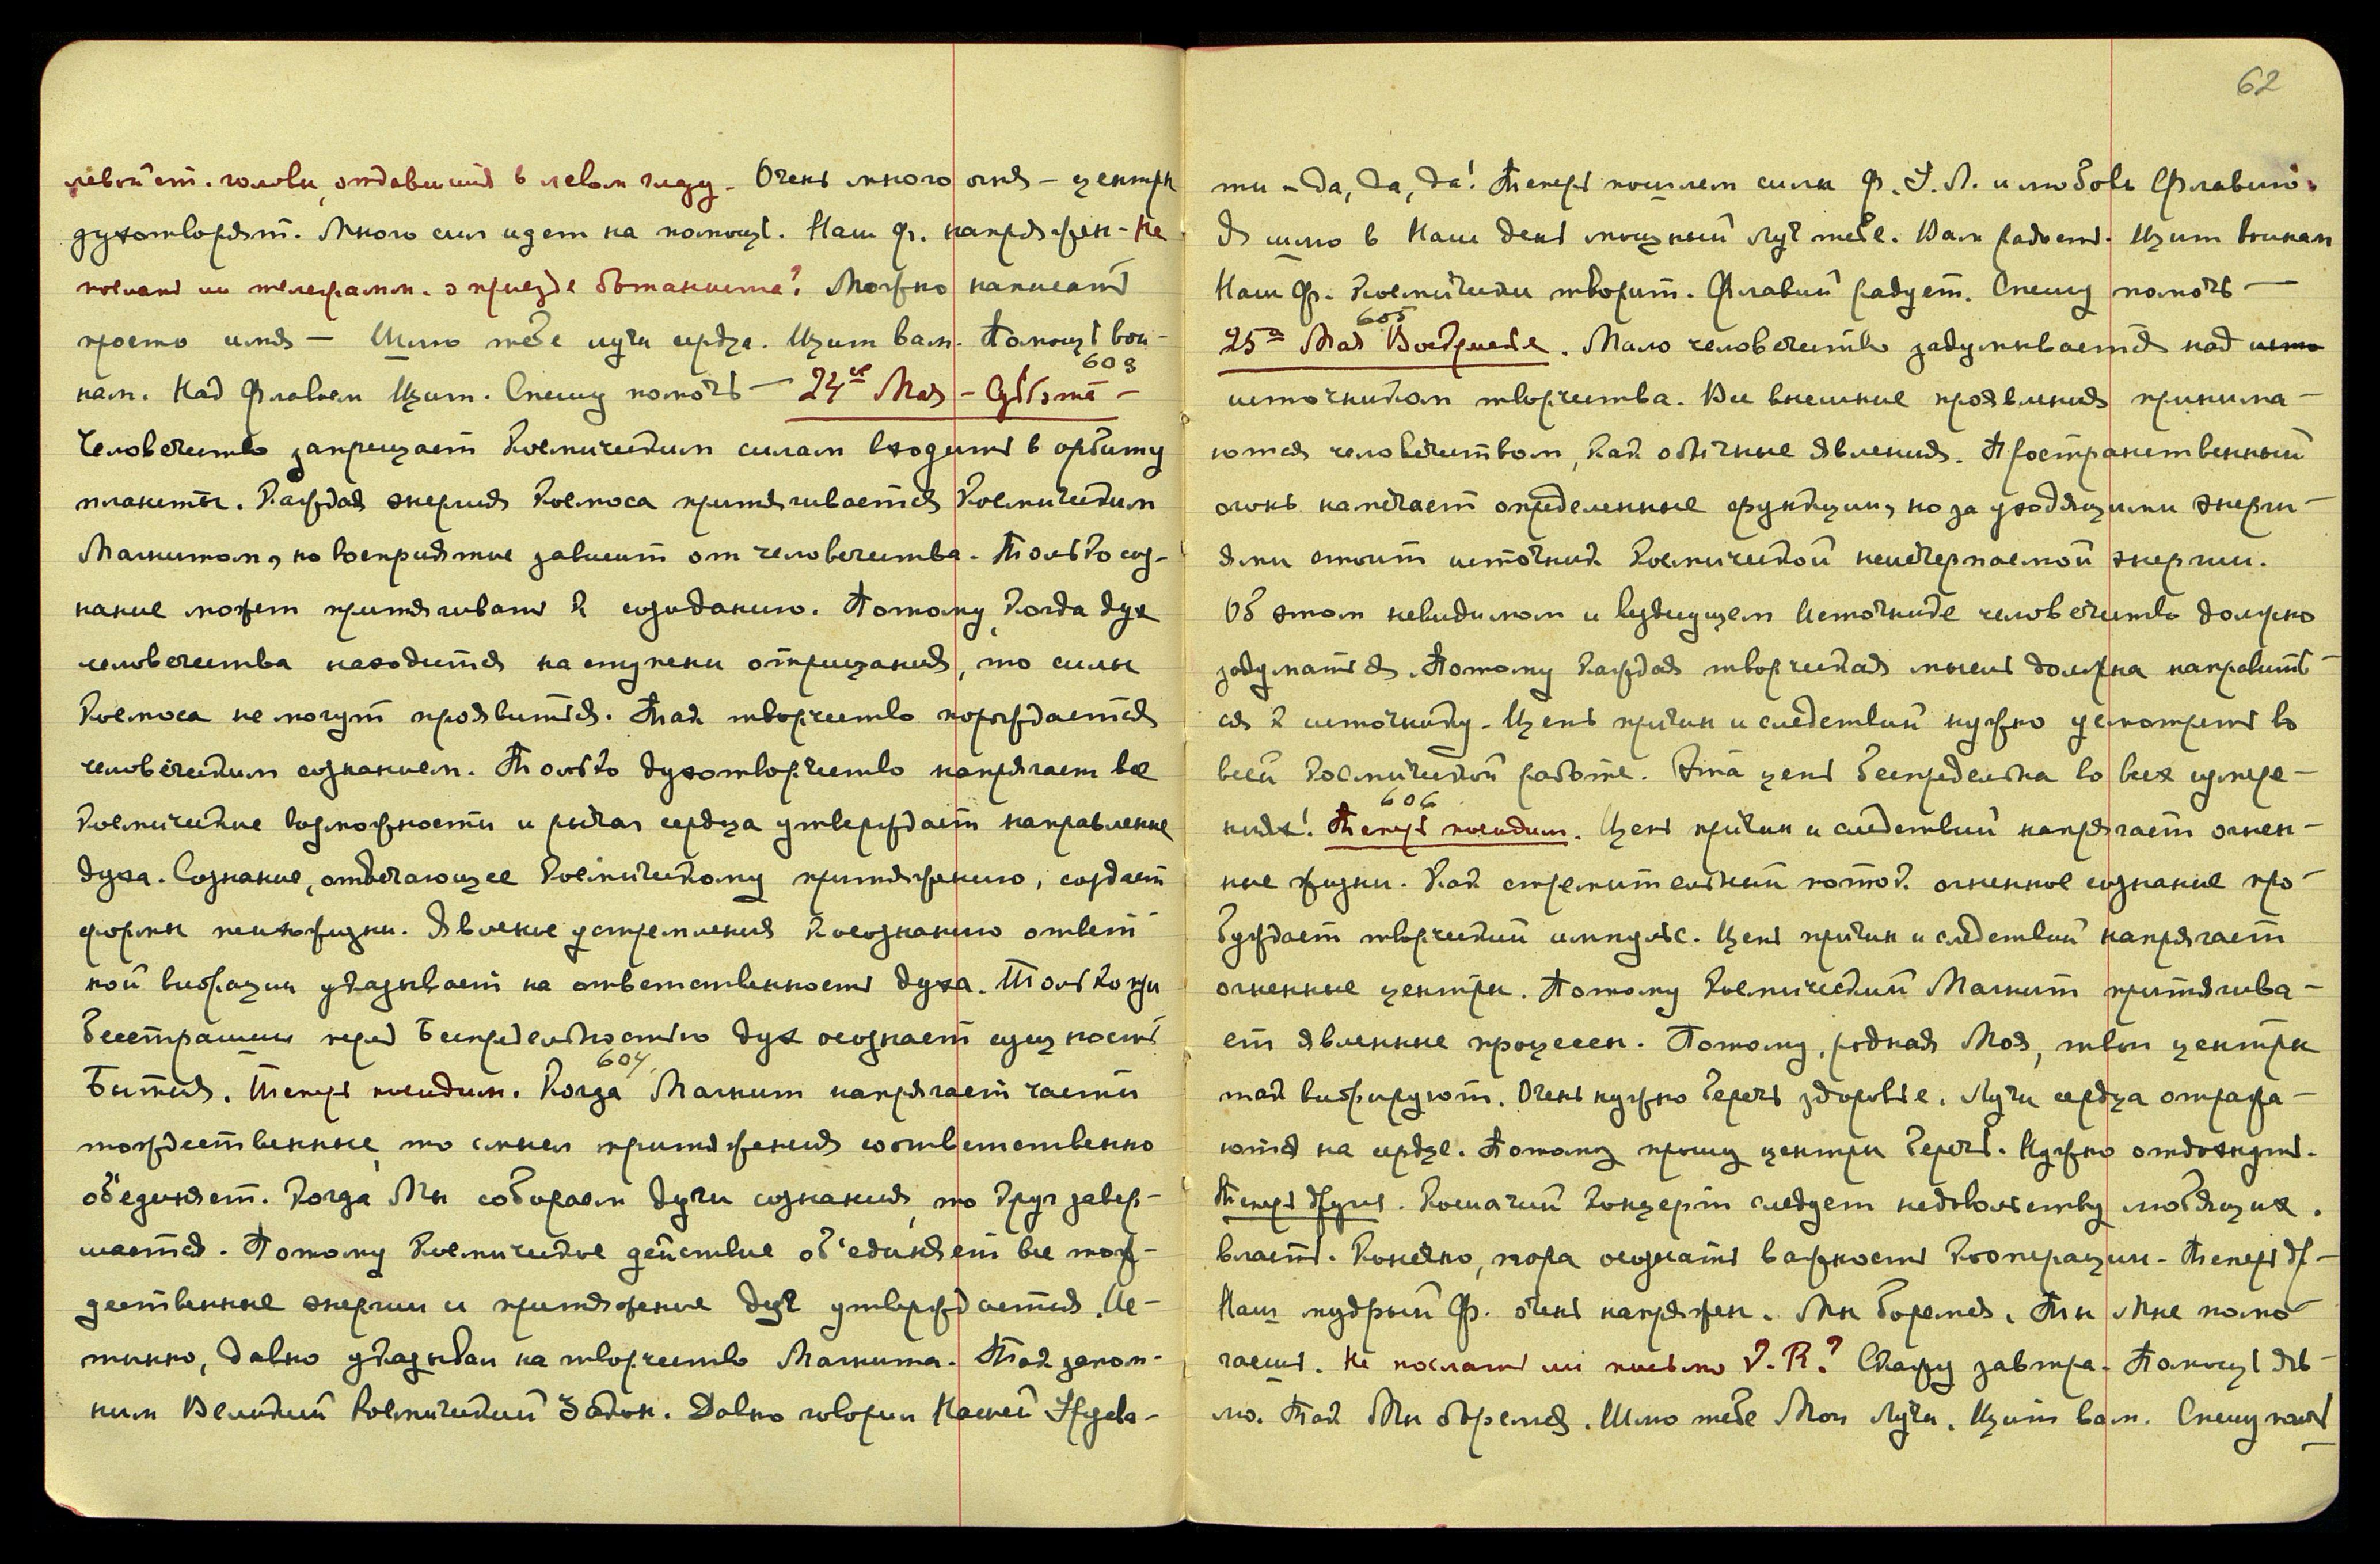 левой ст. головы, отдавшийся в левом глазу. Очень много огня — центры
духотворят. Много сил идет на помощь. Наш Ф. напряжен — Не
послать ли телеграмм. о приезде ботаниста? Можно написать
просто имя — Шлю тебе лучи сердца. Щит вам. Помощь вои-
нам. Над Флавием Щит. Спешу помочь — 24ое Мая — Суббота —
603
Человечество запрещает Космическим силам входить в орбиту
планеты. Каждая энергия Космоса притягивается Космическим
Магнитом, но восприятие зависит от человечества. Только соз-
нание может притягивать к созиданию. Потому, когда дух
человечества находится на ступени отрицания, то силы
Космоса не могут проявиться. Так творчество порождается
человеческим сознанием. Только духотворчество напрягает все
Космические возможности и рычаг сердца утверждает направление
духа. Сознание, отвечающее Космическому притяжению, создает
формы психожизни. Явление устремления к осознанию ответ-
ной вибрации указывает на ответственность духа. Только при
бесстрашии перед Беспредельностью дух осознает сущность
Бытия. Теперь посидим. 604. Когда Магнит напрягает части
тождественные, то смысл притяжения соответственно
об'единяет. Когда Мы собираем духи сознания, то круг завер-
шается. Потому Космическое действие об'единяет все тож-
дественные энергии и притяжение душ утверждается. Ис-
тинно, давно указывал на творчество Магнита. Так запом-
ним Великий Космический Закон. Давно говорил Нашей Урусва-
62
ти — да, да, да! Теперь пошлем силы Ф. У. Л. и любовь Флавию.
Я шлю в Наш день мощный луч тебе. Вам радость. Щит воинам
Наш Ф. Космически творит. Флавий радует. Спешу помочь —
605
25а Мая Воскресенье. Мало человечество задумывается над исто
источником творчества. Все внешние проявления принима-
ются человечеством, как обычные явления. Пространственный
огонь намечает определенные функции, но за уходящими энерги-
ями стоит источник Космической неисчерпаемой энергии.
Об этом невидимом и вездесущем Источнике человечество должно
задуматься. Потому каждая творческая мысль должна направить-
ся к источнику. Цепь причин и следствий нужно усмотреть во
всей Космической работе. Эта цепь беспредельна во всех измере-
606
ниях! Теперь посидим. Цепь причин и следствий напрягает огнен-
ные жизни. Как стремительный поток огненное сознание про-
буждает творческий импульс. Цепь причин и следствий напрягает
огненные центры. Потому Космический Магнит притягива-
ет явленные процессы. Потому, родная Моя, твои центры
так вибрируют. Очень нужно беречь здоровье. Лучи сердца отража-
ются на сердце. Потому прошу центры беречь. Нужно отдохнуть.
Теперь другие. Кошачий концерт следует недовольству любящих
власть. Конечно, пора осознать важность кооперации. Теперь др-
Наш мудрый Ф. очень напряжен. Мы боремся. Ты Мне помо-
гаешь. Не послать ли письмо V. R.? Скажу завтра. Помощь яв-
лю. Так Мы боремся. Шлю тебе Мои Лучи. Щит вам. Спешу помочь